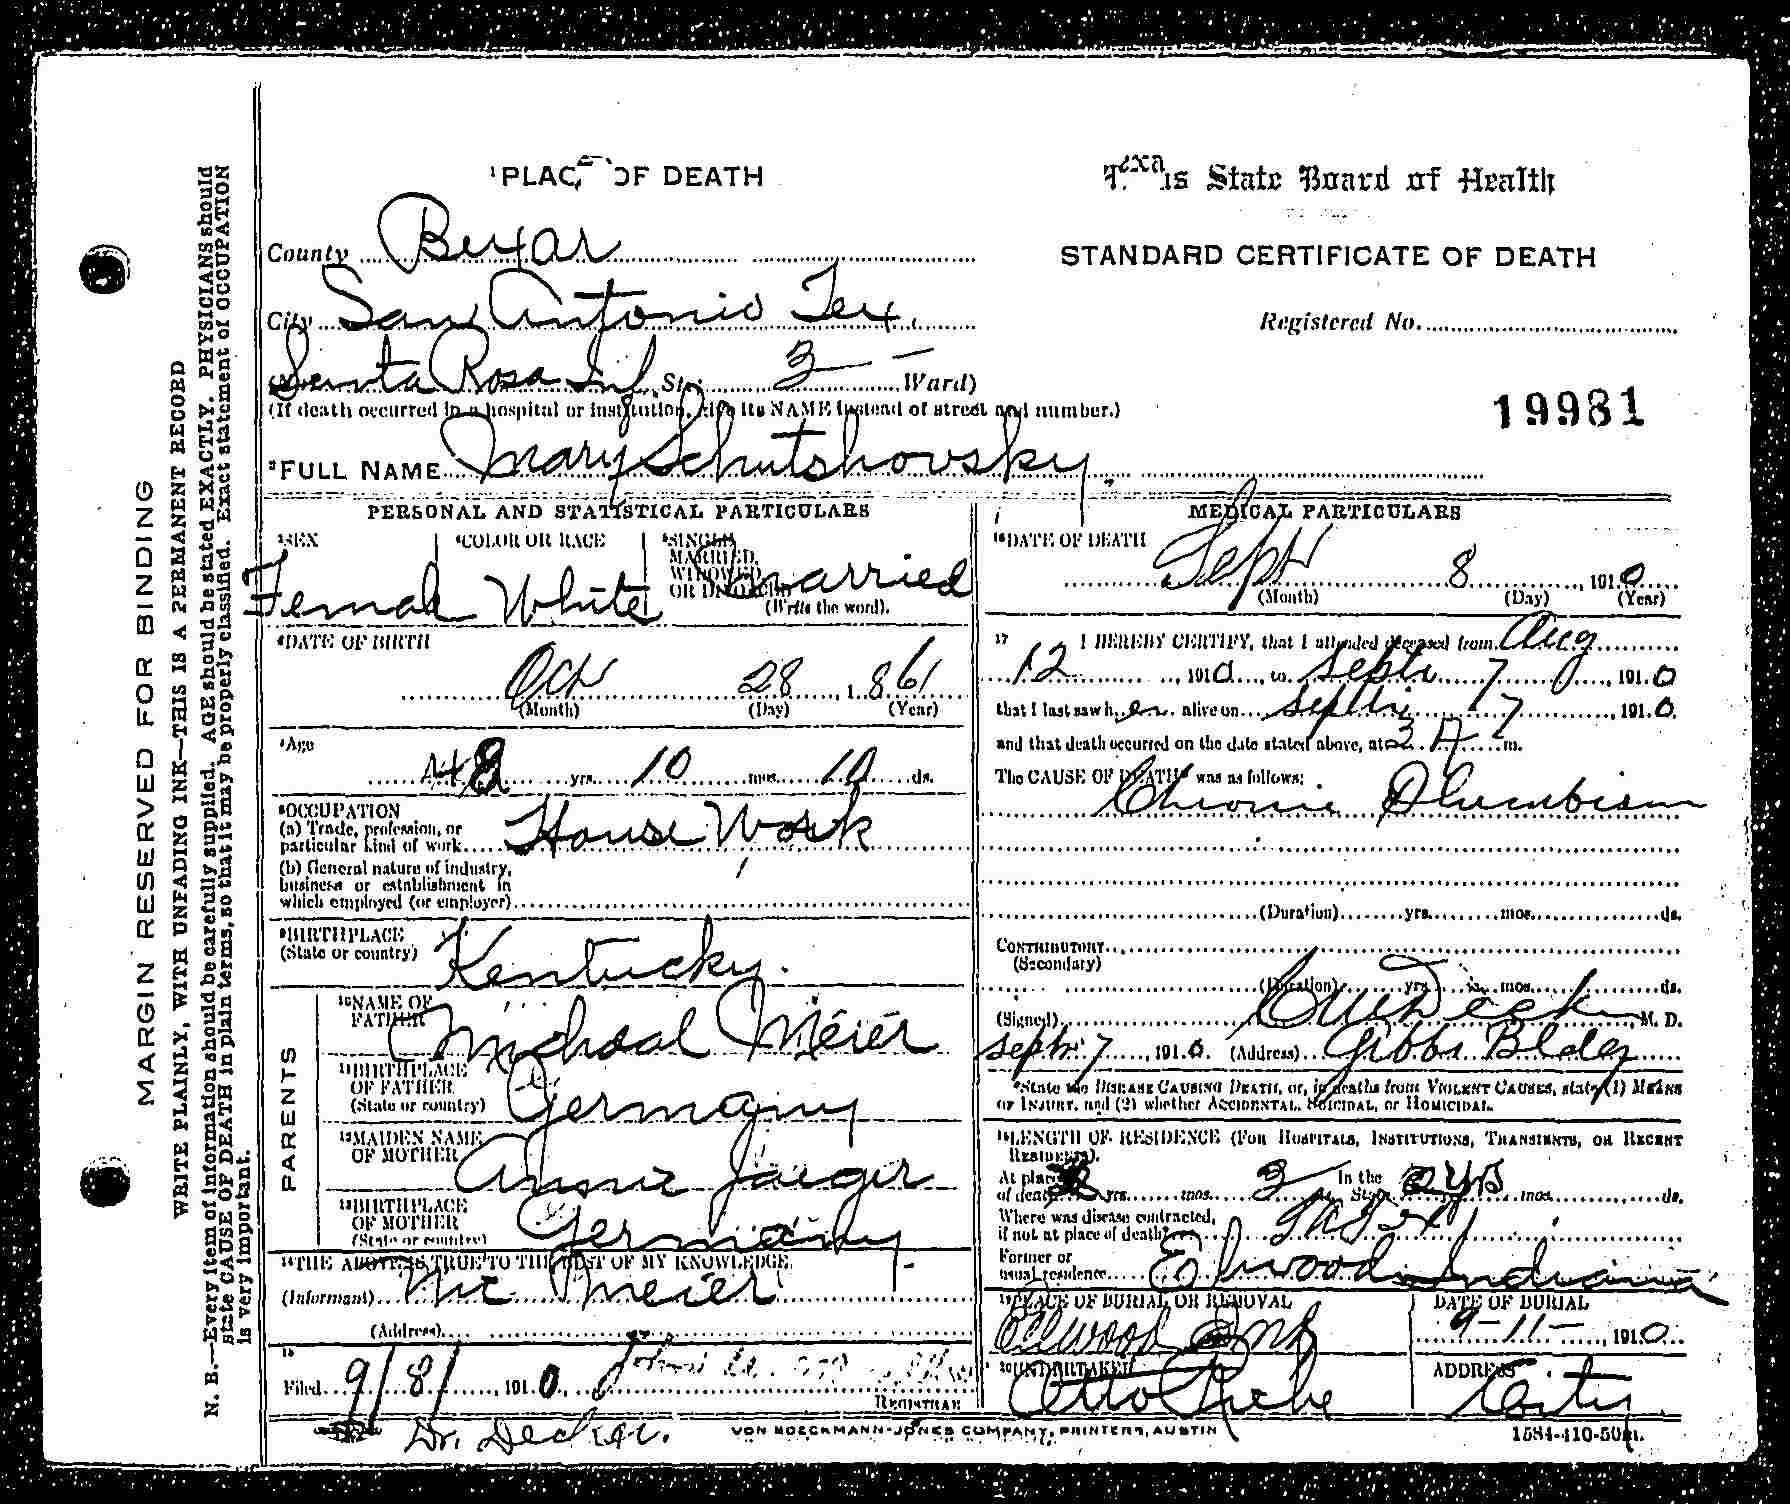 MARGIN RESERVED FOR BINDING
WRITE PLAINLY, WITH UNFADING INK—THIS IS A PERMANENT RECORD
N. B.—Every item of information should be carefully supplied. AGE should be stated EXACTLY. PHYSICIANS should
state CAUSE OF DEATH in plain terms, so that it may be properly classified. Exact statement of OCCUPATION
is very important.
1 PLACE OF DEATH
Texas State Board of Health
County Bexar
STANDARD CERTIFICATE OF DEATH
City San Antonio Tex.
Registered No.
Santa Rosa Inf St.; 3 — Ward)
(If death occurred in a hospital or institution, give its NAME instead of street and number.)
19981
2 FULL NAME Mary Schutshovsky
PERSONAL AND STATISTICAL PARTICULARS
3 SEX Female
4 COLOR OR RACE White
5 SINGLE, MARRIED, WIDOWED, OR DIVORCED married
(Write the word).
6 DATE OF BIRTH
Oct 28, 1861
(Month) (Day) (Year)
7 Age
48 yrs. 10 mos. 10 ds.
8 OCCUPATION
(a) Trade, profession, or
particular kind of work House Work
(b) General nature of industry,
business or establishment in
which employed (or employer)
9 BIRTHPLACE
(State or country) Kentucky.
PARENTS
10 NAME OF
FATHER Michael Meier
11 BIRTHPLACE
OF FATHER
(State or country) Germany
12 MAIDEN NAME
OF MOTHER Annie Jaeger
13 BIRTHPLACE
OF MOTHER
(State or country) Germany
14 THE ABOVE IS TRUE TO THE BEST OF MY KNOWLEDGE
(Informant) Mr Meier
(Address)
15
Filed 9/8/, 1910,
REGISTRAR
Dr. Decker.
MEDICAL PARTICULARS
16 DATE OF DEATH
Sept 8, 1910
(Month) (Day) (Year)
17 I HEREBY CERTIFY, that I attended deceased from Aug
12, 1910, to Sept 7, 1910
that I last saw her alive on Sept 7, 1910.
and that death occurred on the date stated above, at 3 A m.
The CAUSE OF DEATH* was as follows:
Chronic Plumbism
(Duration) yrs. mos. ds.
CONTRIBUTORY
(Secondary)
(Duration) yrs. mos. ds.
(Signed) Decker, M. D.
Sept 7, 1910. (Address) Gibbs Bldg
*State the DISEASE CAUSING DEATH, or, in deaths from VIOLENT CAUSES, state (1) MEANS
OF INJURY, and (2) whether ACCIDENTAL, SUICIDAL, or HOMICIDAL.
18 LENGTH OF RESIDENCE (FOR HOSPITALS, INSTITUTIONS, TRANSIENTS, OR RECENT
RESIDENTS).
At place
of death yrs. mos. 3 In the State 2 yrs mos. ds.
Where was disease contracted,
if not at place of death?
Former or
usual residence Elwood Indiana
19 PLACE OF BURIAL OR REMOVAL
Ellwood Ind
DATE OF BURIAL
9-11-, 1910
20 UNDERTAKER
Otto Riebe
ADDRESS
City
VON BOECKMANN-JONES COMPANY, PRINTERS, AUSTIN
1584-410-50m.